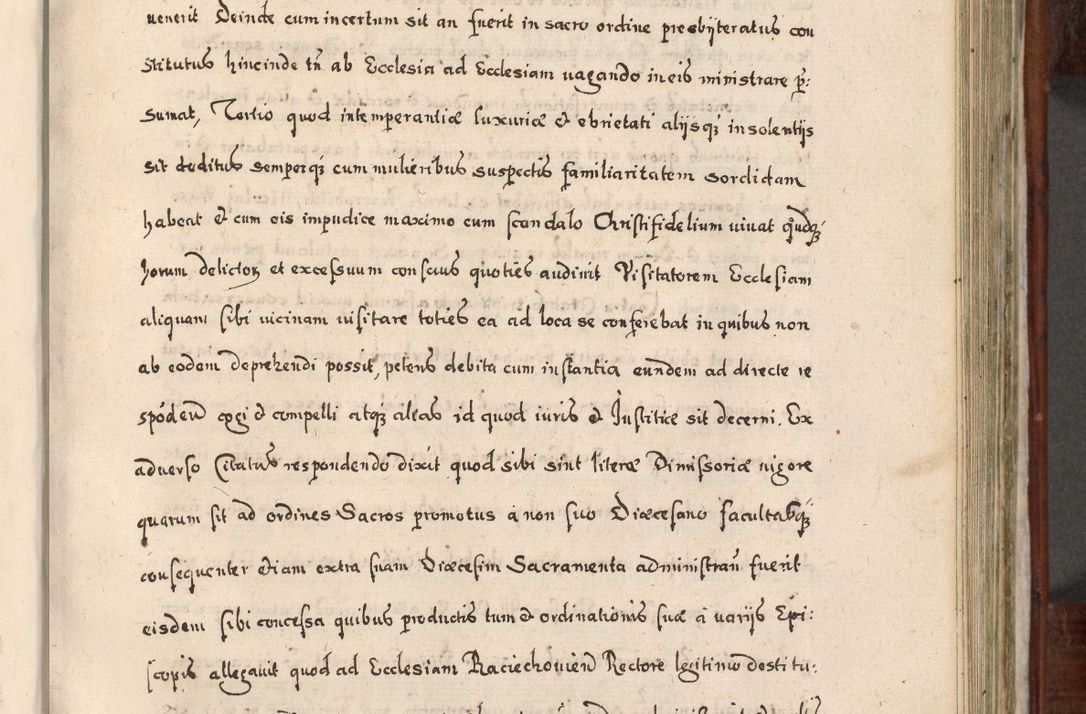 uenerit Deinde cum incertum sit an fuerit in sacro ordine presbÿteratus con
stitutus hincinde tn̄ ab Ecclesia ad Ecclesiam uagando in eis ministrare p̱:
sumat, Tertio quod intemperantiæ luxuriæ & ebrietati alijsqȝ insolentijs
sit deditus semperqȝ cum mulieribus suspectis familiaritatem sordidam
habeat & cum eis impudice maximo cum scandalo Christifidelium uiuat qudqȝ
horum delictoꝝ et excessuum conscius quoties audiuit Visitatorem Ecclesiam
aliquam sibi uicinam uisitare toties ea ad loca se conferebat in quibus non
ab eodem deprehendi possit, petens debita cum instantia eundem ad directe re
spódeñ cogi & compelli atqȝ alias id quod iuris & Justitiæ sit decerni. Ex
aduerso Citatus respondendo dixit quod sibi sint literæ Dimissoriæ uigore
quarum sit ad ordines Sacros promotus à non suo Diæcesano facultasqȝ
consequenter etiam extra suam Diæcesim Sacramenta administrañ fuerit
eisdem sibi concessa quibus productis tum & ordinationis suæ à varijs Epi:
scopis allegauit quod ad Ecclesiam Raciechouieñ Rectore legitimo destitu: